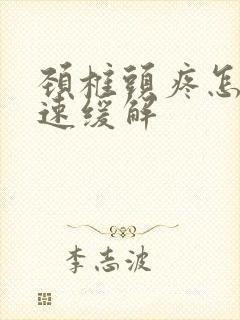 颈椎頭疼怎
速缓解
李志波